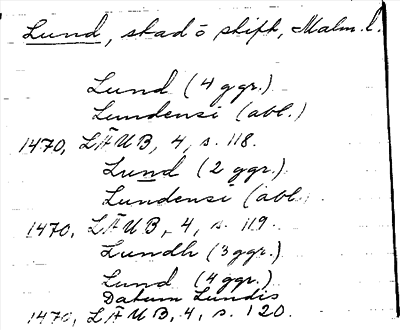 Lund, stad ō stift, Malm. l.
Lund (4 ggr.)
Lundensi (abl.)
1470, LÄUB, 4, s. 118.
Lund (2 ggr.)
Lundensi (abl.
1470, LÄUB, 4, s. 119.
Lundh (3 ggr.)
Lund (4 ggr.)
Datum Lundis
1470, LÄUB, 4, s. 120.